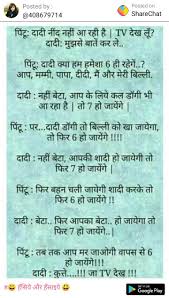 Posted by :
@408679714
Posted on :
ShareChat
पिंटू: दादी नींद नहीं आ रही है | TV देख लूँ?
दादी: मुझसे बातें कर ले..
पिंटू: दादी क्या हम हमेशा 6 ही रहेंगे..?
आप, मम्मी, पापा, दीदी, मैं और मेरी बिल्ली.
दादी : नहीं बेटा, आप के लिये कल डॉगी भी
आ रहा है | तो 7 हो जायेंगे |
पिंटू : पर...दादी डॉगी तो बिल्ली को खा जायेगा,
तो फिर 6 हो जायेंगे !!!!
दादी : नहीं बेटा, आपकी शादी हो जायेगी तो
फिर 7 हो जायेंगे |
पिंटू : फिर बहन चली जायेगी शादी करके तो
फिर 6 हो जायेंगे !!
दादी : बेटा.. फिर आपका बेटा.. हो जायेगा तो
फिर 7 हो जायेंगे..|
पिंटू : तब तक आप मर जाओगी वापस से 6
हो जायेंगे!!!!
दादी : कुत्ते....!!! जा TV देख !!!
हँसिये और हँसाइये
GET IT ON
Google Play